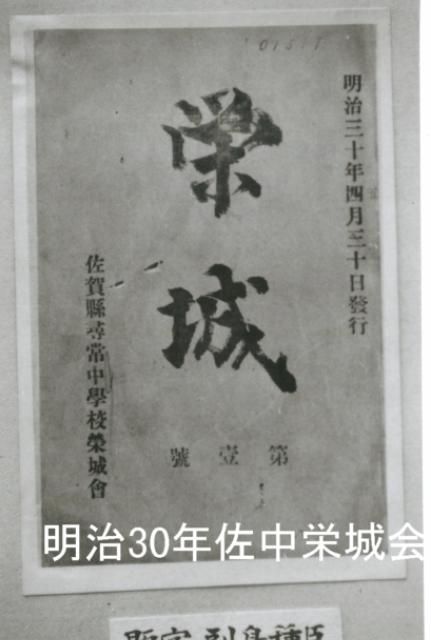 明治三十年四月三十日發行
栄城
第壹號
佐賀縣尋常中學校榮城會
明治30年佐中栄城会